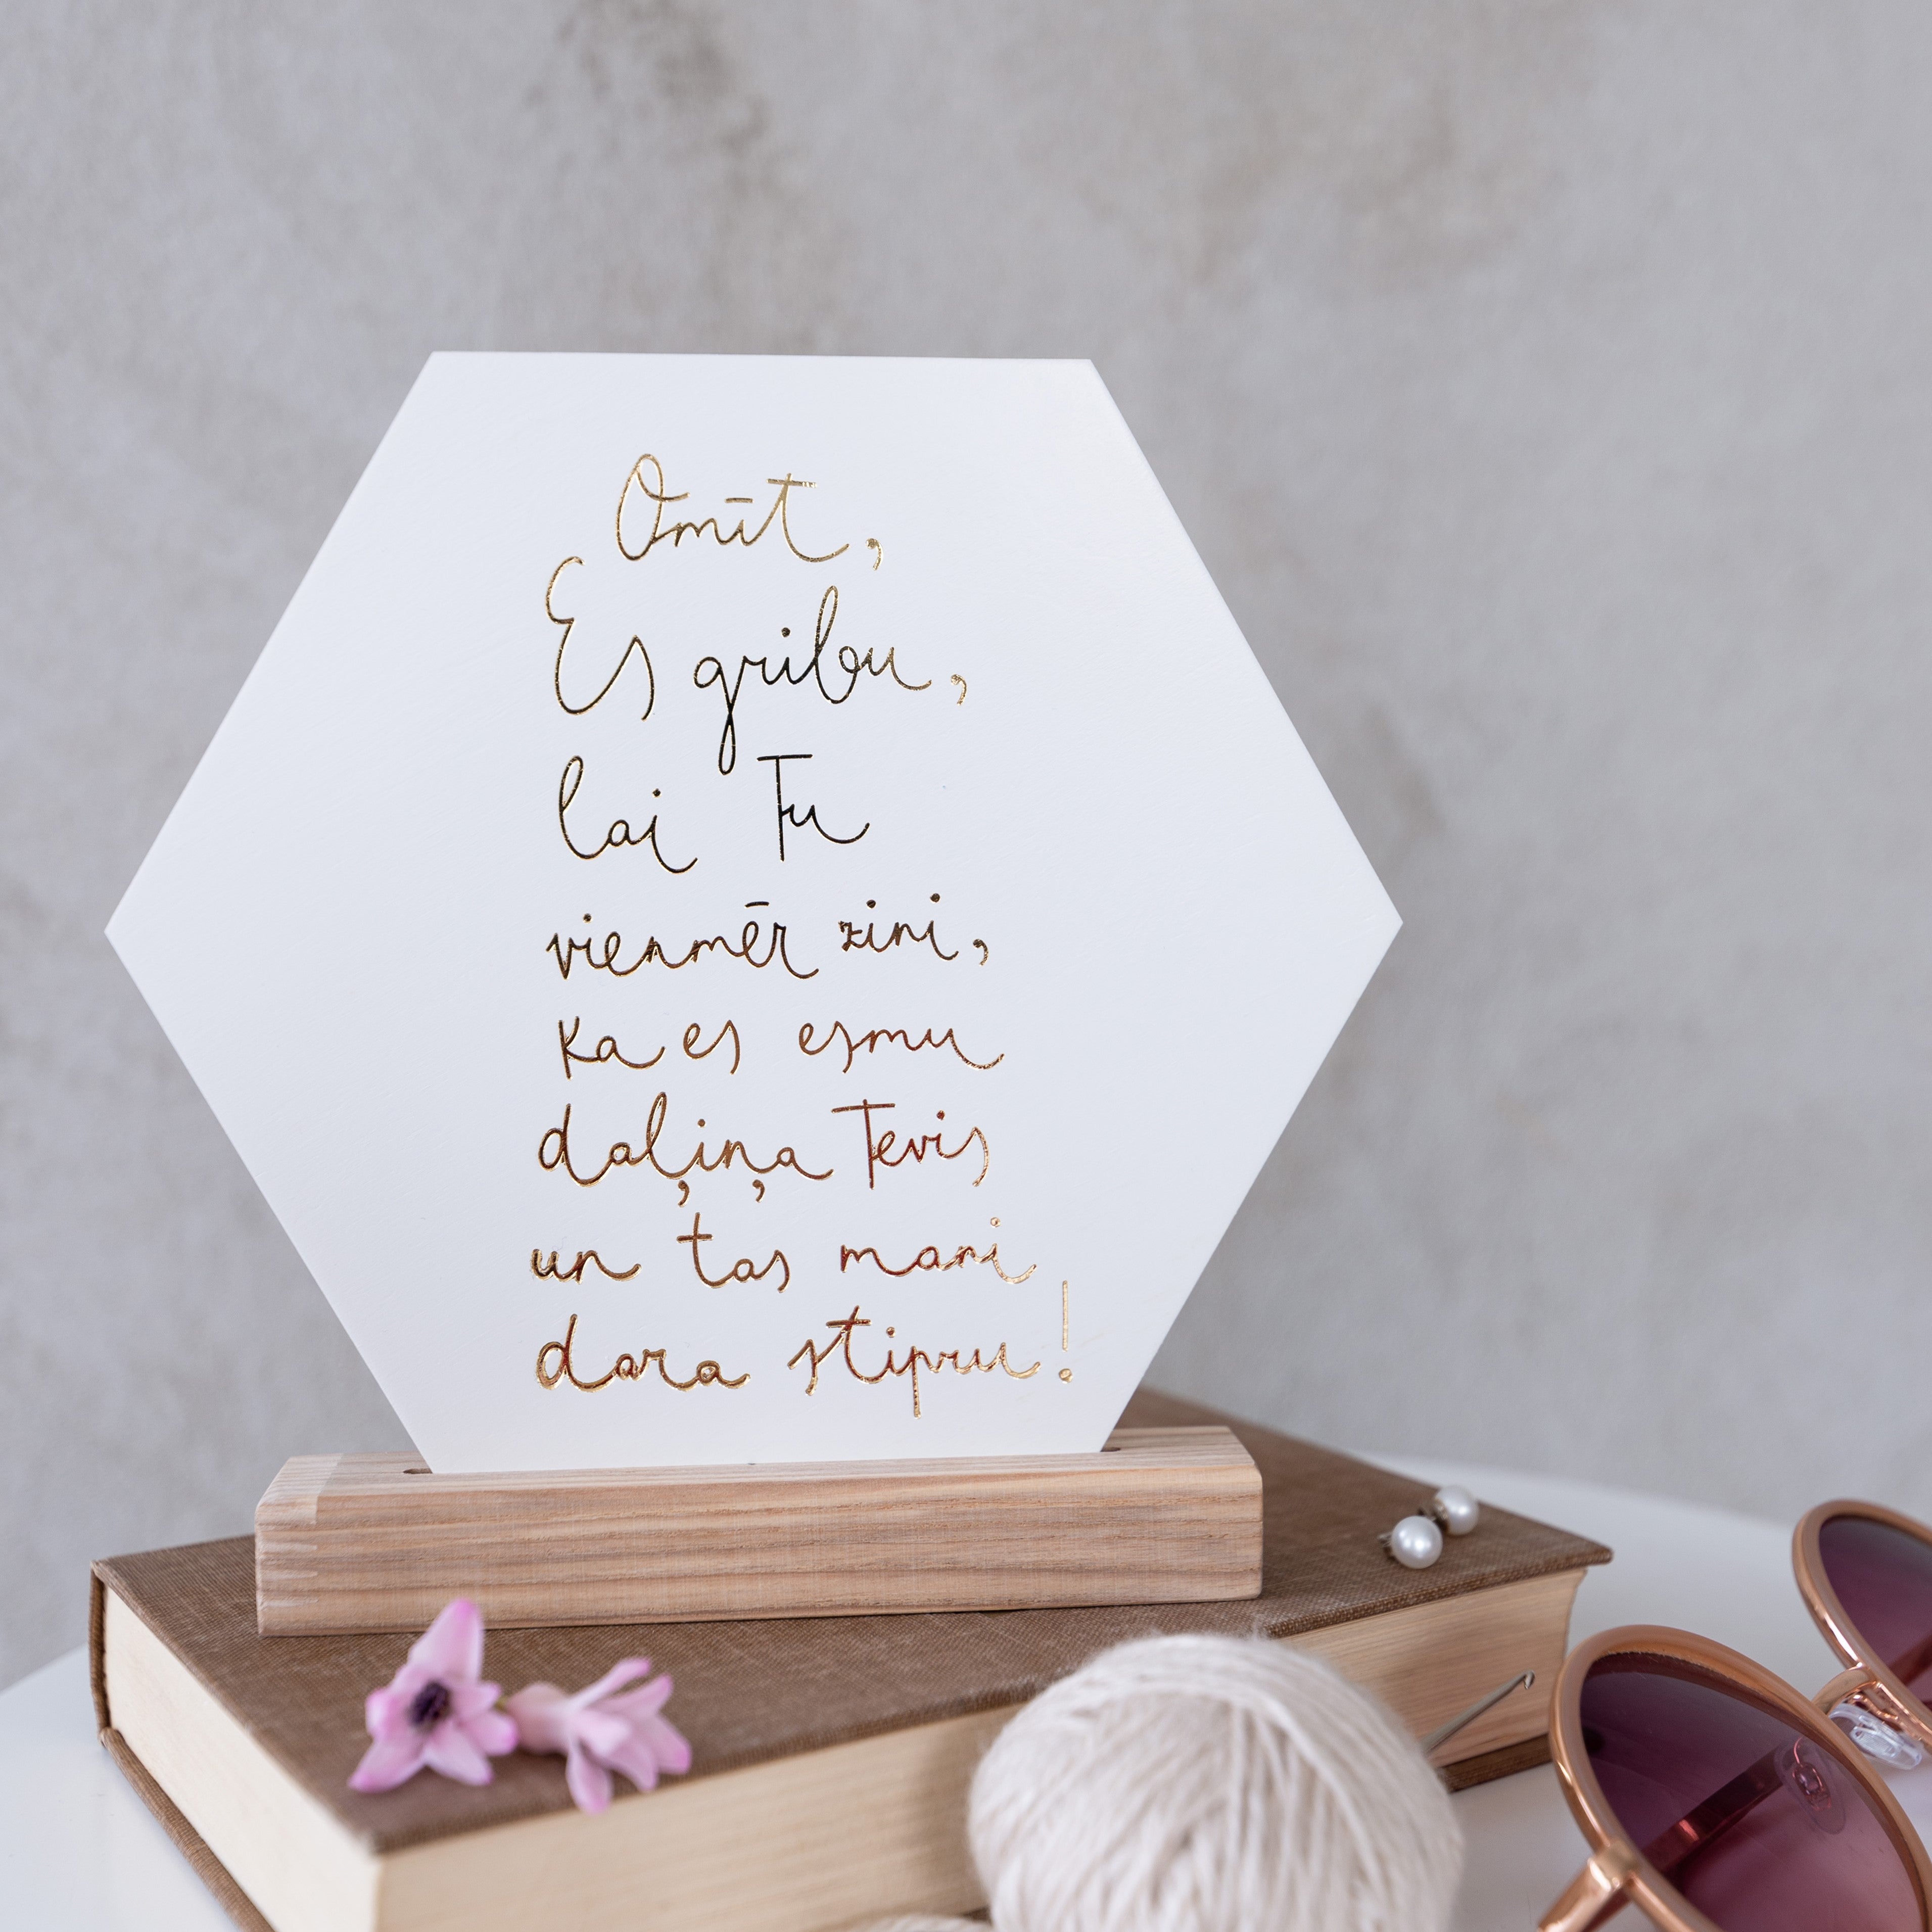 Omīt,
Es gribu,
lai Tu
vienmēr zini,
ka es esmu
daļiņa Tevis
un tas mani
dara stipru!